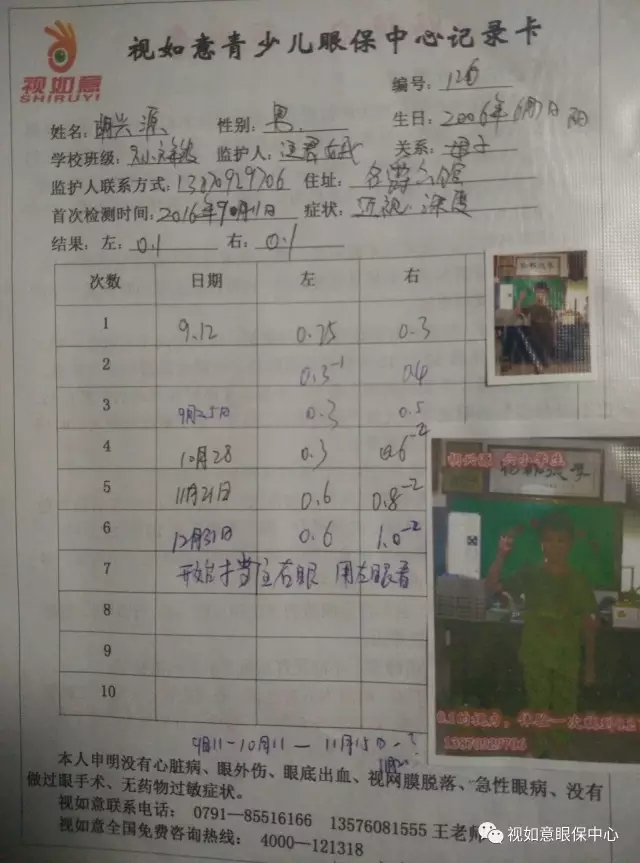 视如意
SHIRUYI
视如意青少儿眼保中心记录卡
编号：126
姓名： 兴源 性别：男 生日：2006年6月7日 阴
学校班级： 监护人： 关系：母子
监护人联系方式：13870929706 住址：
首次检测时间：2016年9月11日 症状：近视 深度
结果：左：0.1 右：0.1
次数 日期 左 右
1 9.12 0.25 0.3
2 0.3⁻¹ 0.4
3 9月25日 0.3 0.5
4 10月28 0.3 0.6⁻²
5 11月21日 0.6 0.8⁻²
6 12月31日 0.6 1.0⁻²
7 开始挡住右眼 用左眼看
8
9
10
9月11-10月11-11月15日
本人申明没有心脏病、眼外伤、眼底出血、视网膜脱落、急性眼病、没有
做过眼手术、无药物过敏症状。
视如意联系电话：0791—85516166 13576081555 王老师
视如意全国免费咨询热线：4000—121318
兴源 六小学生
0.1的视力，体验一次就到0.2
13870929706
视如意眼保中心